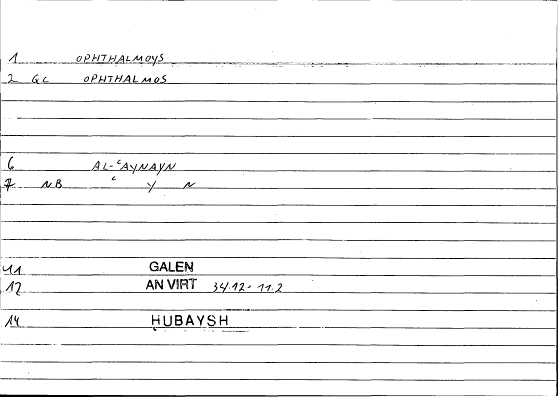 1 OPHTHALMOYS
2 GC OPHTHALMOS
6 AL-ʿAYNAYN
7 NB ʿ Y N
11 GALEN
12 AN VIRT 34.12-11.2
14 ḤUBAYSH